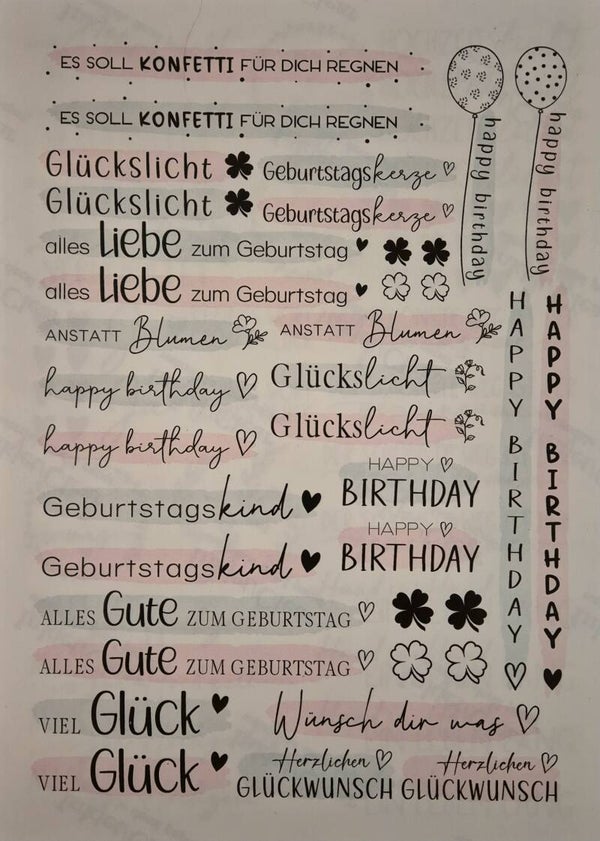 ES SOLL KONFETTI FÜR DICH REGNEN
ES SOLL KONFETTI FÜR DICH REGNEN
Glückslicht Geburtstagskerze
Glückslicht Geburtstagskerze
alles Liebe zum Geburtstag
alles Liebe zum Geburtstag
ANSTATT Blumen ANSTATT Blumen
happy birthday Glückslicht
happy birthday Glückslicht
HAPPY
BIRTHDAY
Geburtstagskind
HAPPY
BIRTHDAY
Geburtstagskind
ALLES Gute ZUM GEBURTSTAG
ALLES Gute ZUM GEBURTSTAG
VIEL Glück Wünsch dir was
VIEL Glück
Herzlichen Herzlichen
GLÜCKWUNSCH GLÜCKWUNSCH
happy birthday
happy birthday
HAPPY BIRTHDAY
HAPPY BIRTHDAY